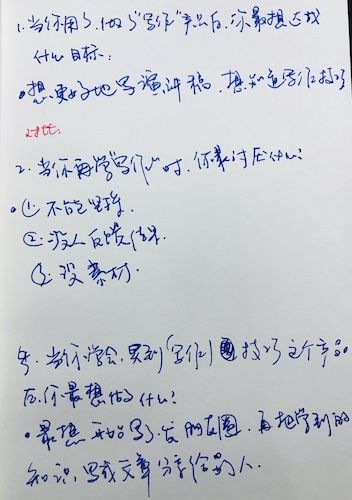 1. 当你用了、做了"写作"产品后，你最想达成
什么目标：
•想更好地写演讲稿，想知道写作技巧
对比：
2. 当你再学"写作"时，你最讨厌什么？
•① 不能坚持.
② 没人反馈结果
③ 没素材.
当你学会、买到「写作」技巧这个产品
后，你最想做什么？
•最想开始写了、发朋友圈，再把学到的
知识，写成文章分享给别人.